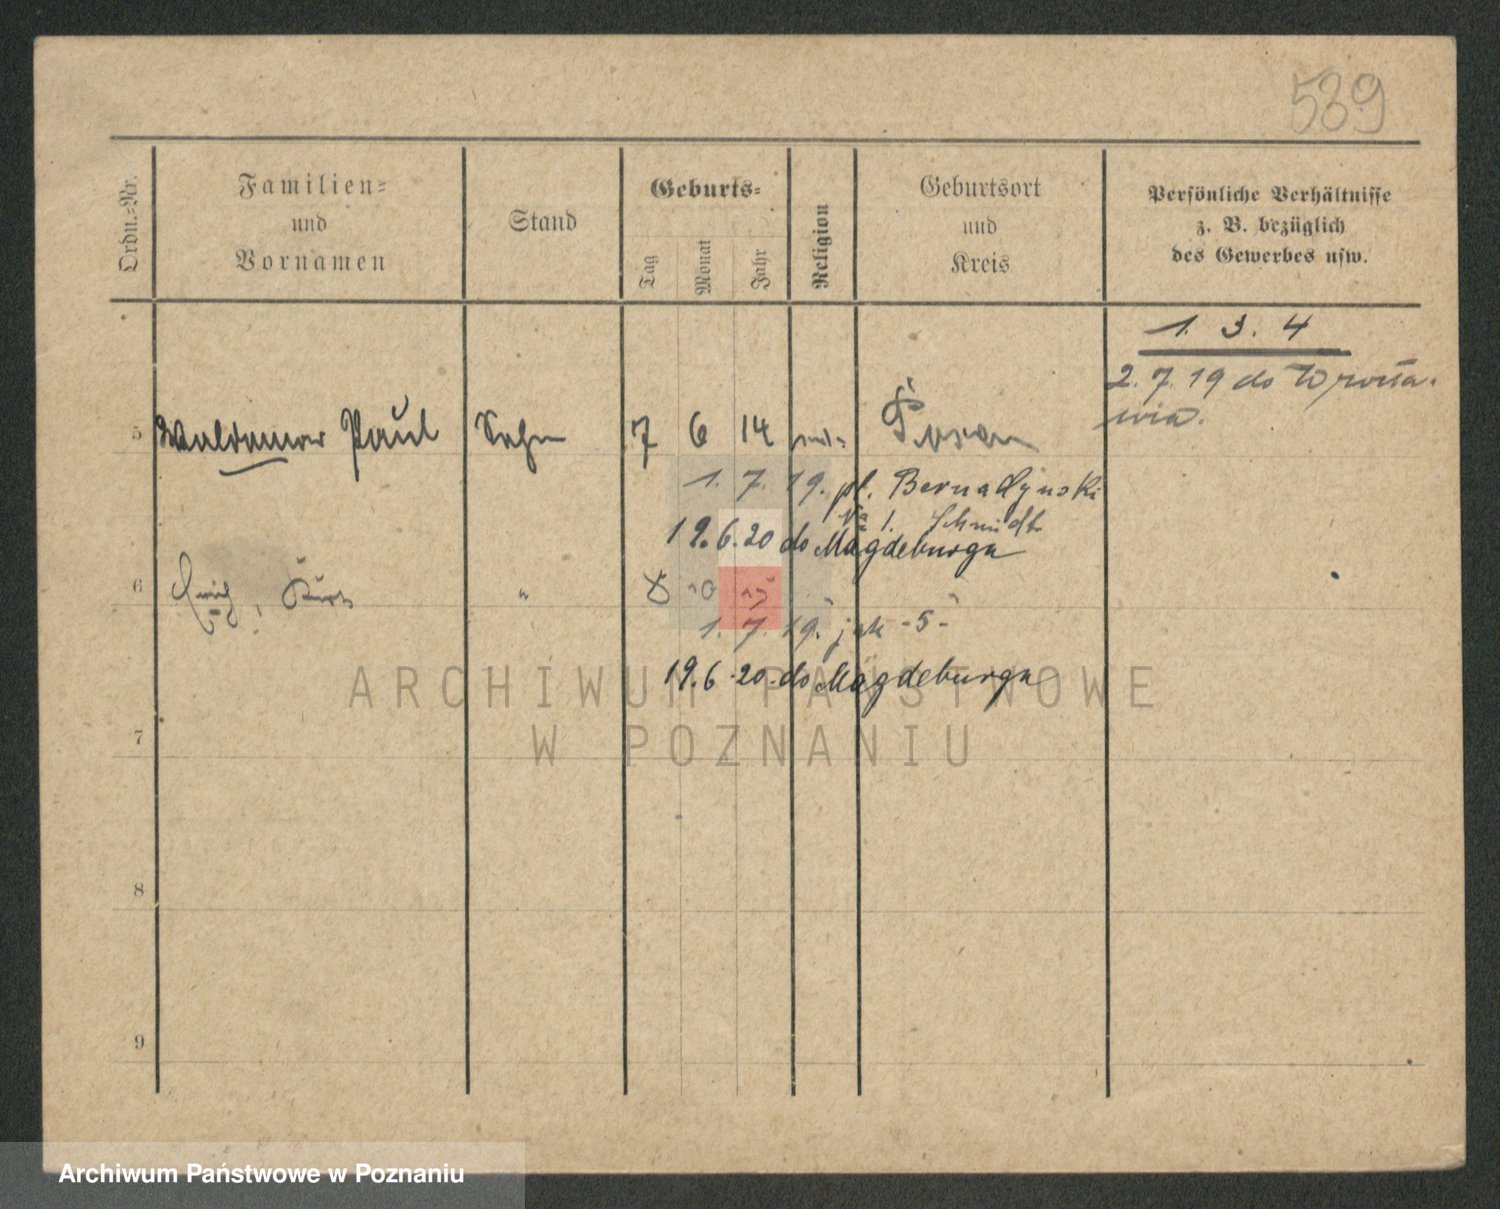 539
Ordn.-Nr.
Familien-
und
Vornamen
Stand
Geburts-
Tag
Monat
Jahr
Religion
Geburtsort
und
Kreis
Persönliche Verhältnisse
z. B. bezüglich
des Gewerbes usw.
1. 3. 4
2. 7. 19 do Wrocła-
wia.
5 Waldemar Paul Sohn 7 6 14 Posen
1. 7. 19. pl. Bernadynski
No 1. Schmidt
19.6.20 do Magdeburga
6 Erich, Kurt "
1. 7. 19. jak -5-
19.6.20. do Magdeburga
ARCHIWUM PAŃSTWOWE
W POZNANIU
7
8
9
Archiwum Państwowe w Poznaniu